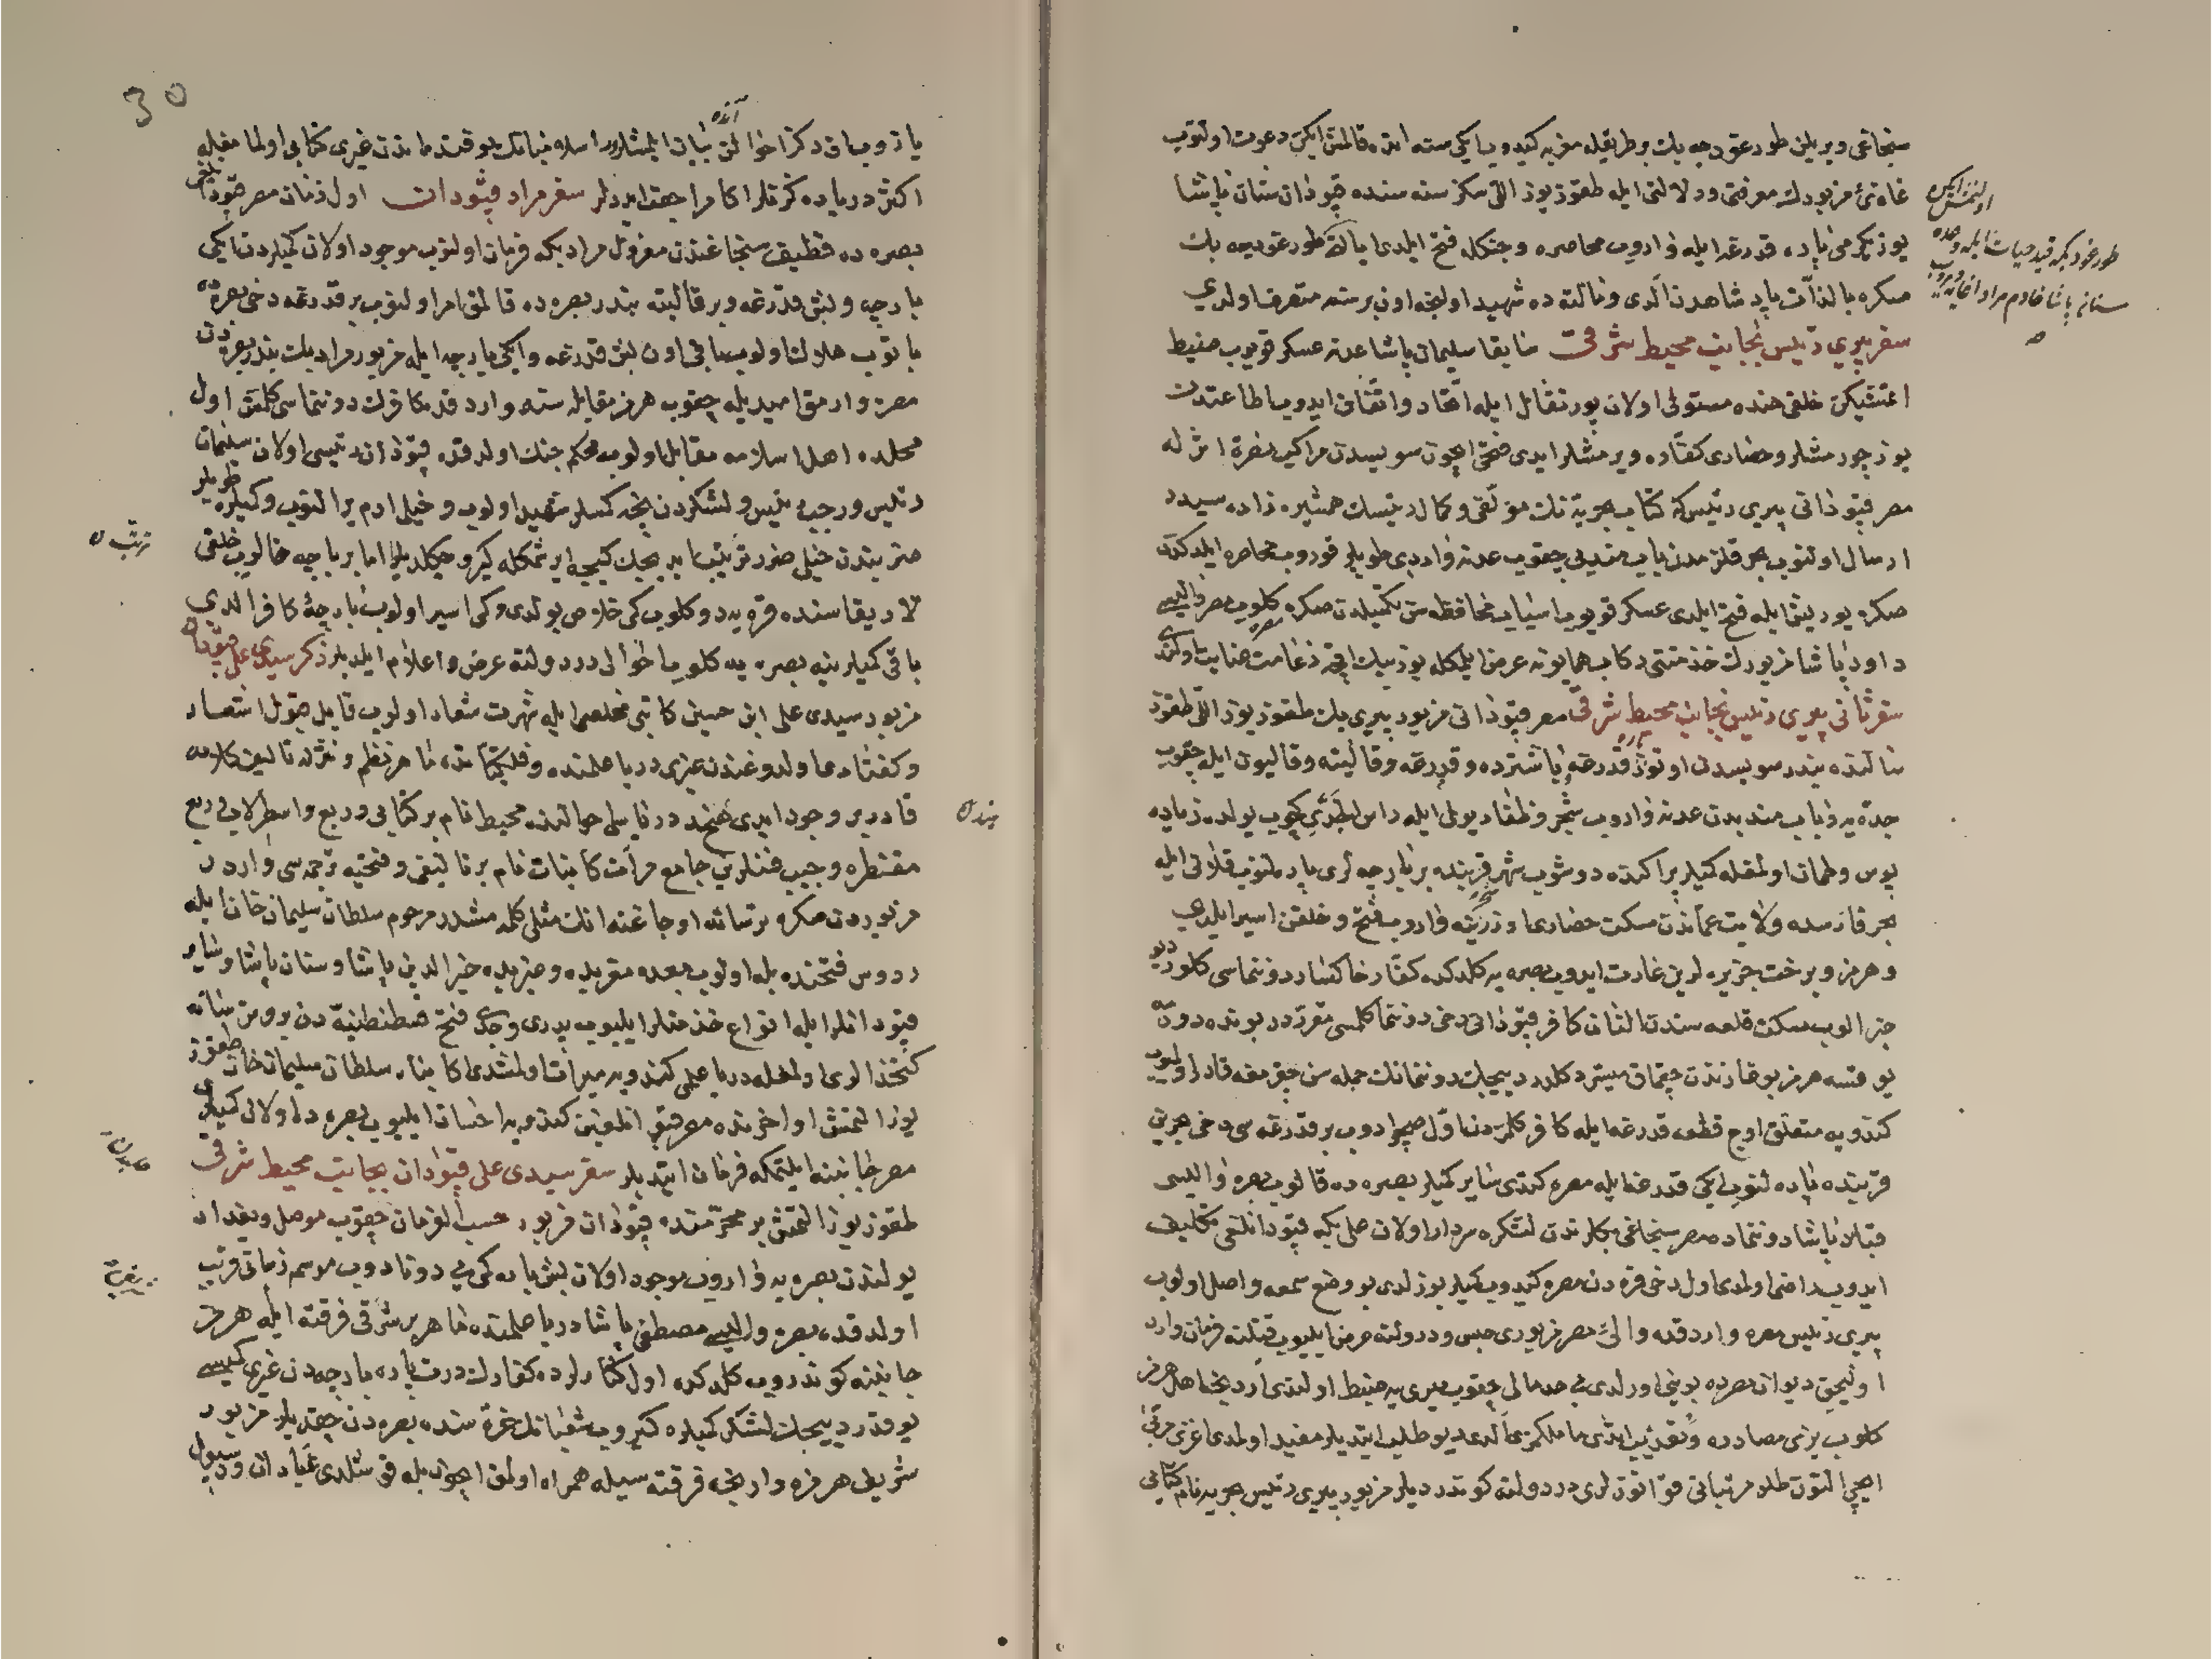 سنجاغی ویریلن طورغودجه بك بر طریقله مغربه کیدوب ایکی سنه انده قالمش ایکن دعوت اولنوب
غازئ مزبورك معرفتی ودلالتی ایله طقوز یوز اللی سکز سنه سنده قپودان سنان پاشا
یوز یکرمی پاره قدرغه ایله واروب محاصره وجنكله فتح ایلدی ایالتی طورغودجه بك
صکره بالذات پادشاهدن آلدی ومالته ده شهید اولنجه اون بر سنه متصرف اولدی
سفر پیری رئیس بجانب محیط شرقی سابقا سلیمان پاشا عدنه عسکر قویوب ضبط
اتمشیکن خلقی هنده مستولی اولان پورتقال ایله اتحاد واتفاق ایدوب اطاعتدن
یوز چورمشلر وحصاری کفاره ویرمشلر ایدی فتحی ایچون سویسدن مراکب نصرة اثر له
مصر قپودانی پیری رئیس که کتاب بحریه نك مؤلفی وکمال رئیسك همشیره زاده سیدر
ارسال اولنوب بحر قلزمدن باب مندبی چقوب عدنه واردی طوپلر قوروب محاصره ایلدکدن
صکره یوریش ایله فتح ایلدی عسکر قویوب اسباب محافظه سن تکمیلدن صکره کلوب مصر والیسی
داود پاشا مزبورك خذمتنی رکاب همایونه عرض ایلمکله یوز بیك اقچه زعامت عنایت اولندی
سفر ثانی پیری رئیس بجانب محیط شرقی مصر قپودانی مزبور پیری بك طقوز یوز اللی طقوز
سالنده بندر سویسدن اوتوز پاره قدرغه وباشترده وقدرغه وقالیته وقالیون ایله چقوب
جده یه وباب مندبدن عدنه واروب شحر وظفار یولی ایله راس الحدی کچوب یولده زیاده
پوس وطمان اولمغله کمیلر پراکنده دوشوب شهر قربنده بر قاچ بارچه لری پاره لنوب قلانی ایله
بحر فارسده ولایت عماندن مسکت حصاری اوزرینه واروب فتح وخلقن اسیر ایلدی
وهرمز وبرخت جزیره لرین غارت ایدوب بصره یه کلدکده کفار خاکسار دوننماسی کلور دیو
خبر الوب مسکت قلعه سندن النان کافر قپودانی دخی دوننما کلمسی مقرردر بونده دورمه
یوقسه هرمز بوغازندن چقمق میسر دکلدر دییجك دوننمانك جمله سن چقرمغه قادر اولمیوب
کندویه متعلق اوچ قطعه قدرغه ایله کافر کلمزدن اول صچرادوب بر قدرغه سی دخی بحرین
قربنده پاره لنوب ایکی قدرغه ایله مصره کتدی سایر کمیلر بصره ده قالوب بصره والیسی
قباد پاشا دوننماده مصر سنجاغی بكلرندن لشکره سردار اولان علی بکه قپودانلغی تکلیف
ایدوب راضی اولمدی اول دخی قره دن مصره کیدوب کمیلر بوزلدی بو وضع سمعه واصل اولوب
پیری رئیس مصره واردقده والئ مصر مزبوری حبس ودر دولته عرض ایلیوب قتلنه فرمان وارد
اولیجق دیوان مصرده بوینی اورلدی بی حد مالی چقوب میری یه ضبط اولندی
ایچی التون طلو مرتبانی قوانوزلری در دولته کوندردیلر مزبور پیری رئیس بحریه نام کتابی
اولنمش ایکن
طورغودبکه قید حیات ایله وعده
30
آنده
یازوب اق دکز احوالن بیان ایلمشلردر اسلامیانك بو فنده ماندن غیری کتابی اولمامغله
اکثر دریاده کزنلر اکا مراجعت ایدرلر سفر مراد قپودان اول زمان مصر قپودانلغی
بصره ده قطیف سنجاغندن معزول مراد بکه فرمان اولنوب موجود اولان کمیلردن ایکی
بارچه وبش قدرغه وبر قالیته بندر بصره ده قالمق امر اولنوب بر قدرغه دخی بصره ده
یانوب هلاك اولوب باقی اون بش قدرغه وایکی بارچه ایله مزبور مراد بك بندر بصره دن
مصره وارمق امیدیله چقوب هرمز مقابله سنه واردقده کافرك دوننماسی کلمش اول
محلده اهل اسلامه مقابل اولوب محکم جنك اولدقده قپودان رئیسی اولان سلیمان
رئیس ورجب رئیس ولشکردن نیجه کسلر شهید اولوب وخیلی ادم یرالنوب وکمیلره طوپلر
ضربندن خیلی ضرر ترتب ایدیجك کیجه ایرشمکله کیرو چکلدیلر اما بر بارچه قالوب خلقی
لار یقاسنده قره یه دوکلوب کمی خلاص بولدی وکمی اسیر اولوب بارچه یی کافر الدی
باقی کمیلر ینه بصره یه کلوب احوالی در دولته عرض واعلام ایلدیلر ذکر سیدی علی قپودان
مزبور سیدی علی ابن حسین کاتبی مخلصی ایله شهرت شعار اولوب قابل خوش اشعار
وکفتاری اولدوغندن غیری دریا علمنده وفلکیاتده ماهر نظم ونثرله تالیف کلامه
قادر بر وجود ایدی هند دریاسی احوالنده محیط نام بر کتابی وربع واسطرلاب وربع
مقنطره وجیب فنلرین جامع مرآت کاینات نام بر تالیفی وفتحیه ترجمه سی واردر
مزبوردن صکره ترسانه اوجاغنه انك مثلی کلمه مشدر مرحوم سلطان سلیمان خان ایله
رودس فتحنده بله اولوب بعده مغربده وجزیده خیرالدین پاشا وسنان پاشا وسایر
قپودانلر ایله انواع خذمتلر ایلیوب پدری وجدی فتح قسطنطنیه دن برو ترسانه
کتخدالری اولمغله دریا علمی کندویه میراث اولمشدی کاینا سلطان سلیمان خان طقوز
یوز التمش اواخرنده مصر قپودانلغین کندویه احسان ایلیوب بصره ده اولان کمیلری
مصر جانبنه ایلتمکه فرمان ایتدیلر سفر سیدی علی قپودان بجانب محیط شرقی
طقوز یوز التمش بر محرمنده قپودان مزبور حسب الفرمان چقوب موصل وبغداد
یولندن بصره یه واروب موجود اولان بش پاره کمی یی دوناروب موسم زمانی قریب
اولدقده بصره والیسی مصطفی پاشا دریا علمنده ماهر بر شرقی فرقته ایله هرمز
جانبنه کوندروب کلدکده اول کنارلرده کفارك درت پاره بارچه دن غیری کمیسی
یوقدر دییجك لشکر کمیلره کیروب شعبانك غره سنده بصره دن چقدیلر مزبور
شریفی هرمزه وارنجه فرقته سیله همراه اولمق ایچون بله قوشلدی عبادان ودسبول